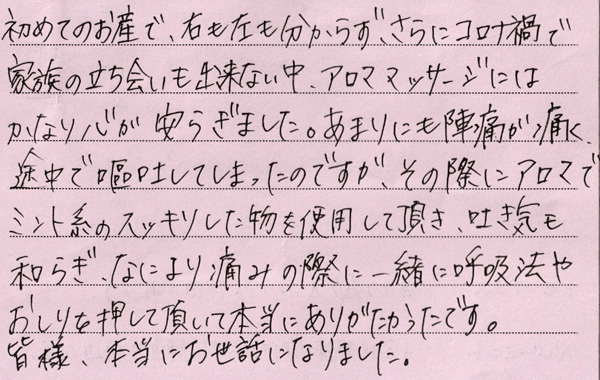 初めてのお産で、右も左も分からず、さらにコロナ禍で
家族の立ち会いも出来ない中、アロママッサージには
かなり心が安らぎました。あまりにも陣痛が痛く、
途中で嘔吐してしまったのですが、その際にアロマで
ミント系のスッキリした物を使用して頂き、吐き気も
和らぎ、なにより痛みの際に一緒に呼吸法や
おしりを押して頂いて本当にありがたかったです。
皆様、本当にお世話になりました。